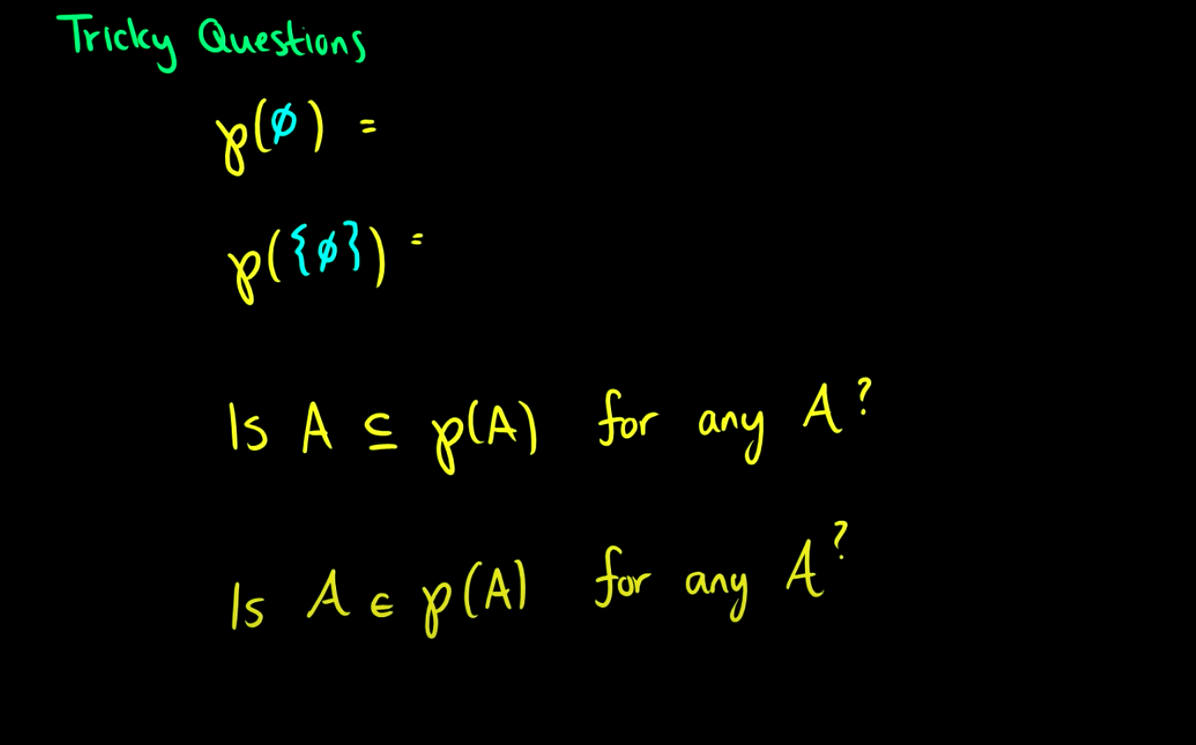 Tricky Questions
℘(∅) =
℘({∅}) =
Is A ⊆ ℘(A) for any A?
Is A ∈ ℘(A) for any A?